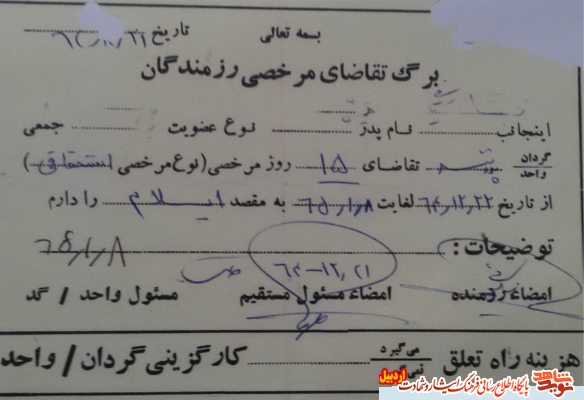 بسمه تعالی
تاریخ ۶۴/۱۰/۲۱
برگ تقاضای مرخصی رزمندگان
اینجانب نام پدر نوع عضویت جمعی
گردان واحد تقاضای ۱۵ روز مرخصی (نوع مرخصی استحقاقی)
از تاریخ ۶۴,۱۲,۲۲ لغایت ۶۵,۱,۸ به مقصد ایلام را دارم
توضیحات: ۶۵,۱,۸
۶۴-۱۲,۲۱
امضاء رزمنده امضاء مسئول مستقیم مسئول واحد / گد
هزینه راه تعلق می‌گیرد نمی کارگزینی گردان / واحد
نوید شاهد پایگاه اطلاع رسانی فرهنگ ایثار و شهادت اردبیل